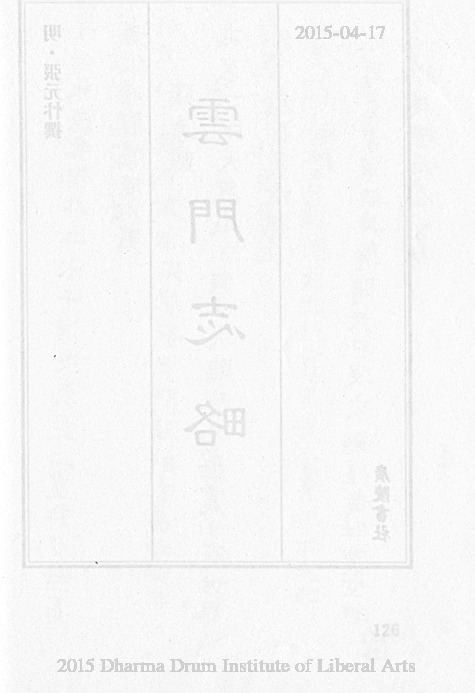 2015-04-17
明·張元忭撰
雲門志略
廣陵書社
126
2015 Dharma Drum Institute of Liberal Arts